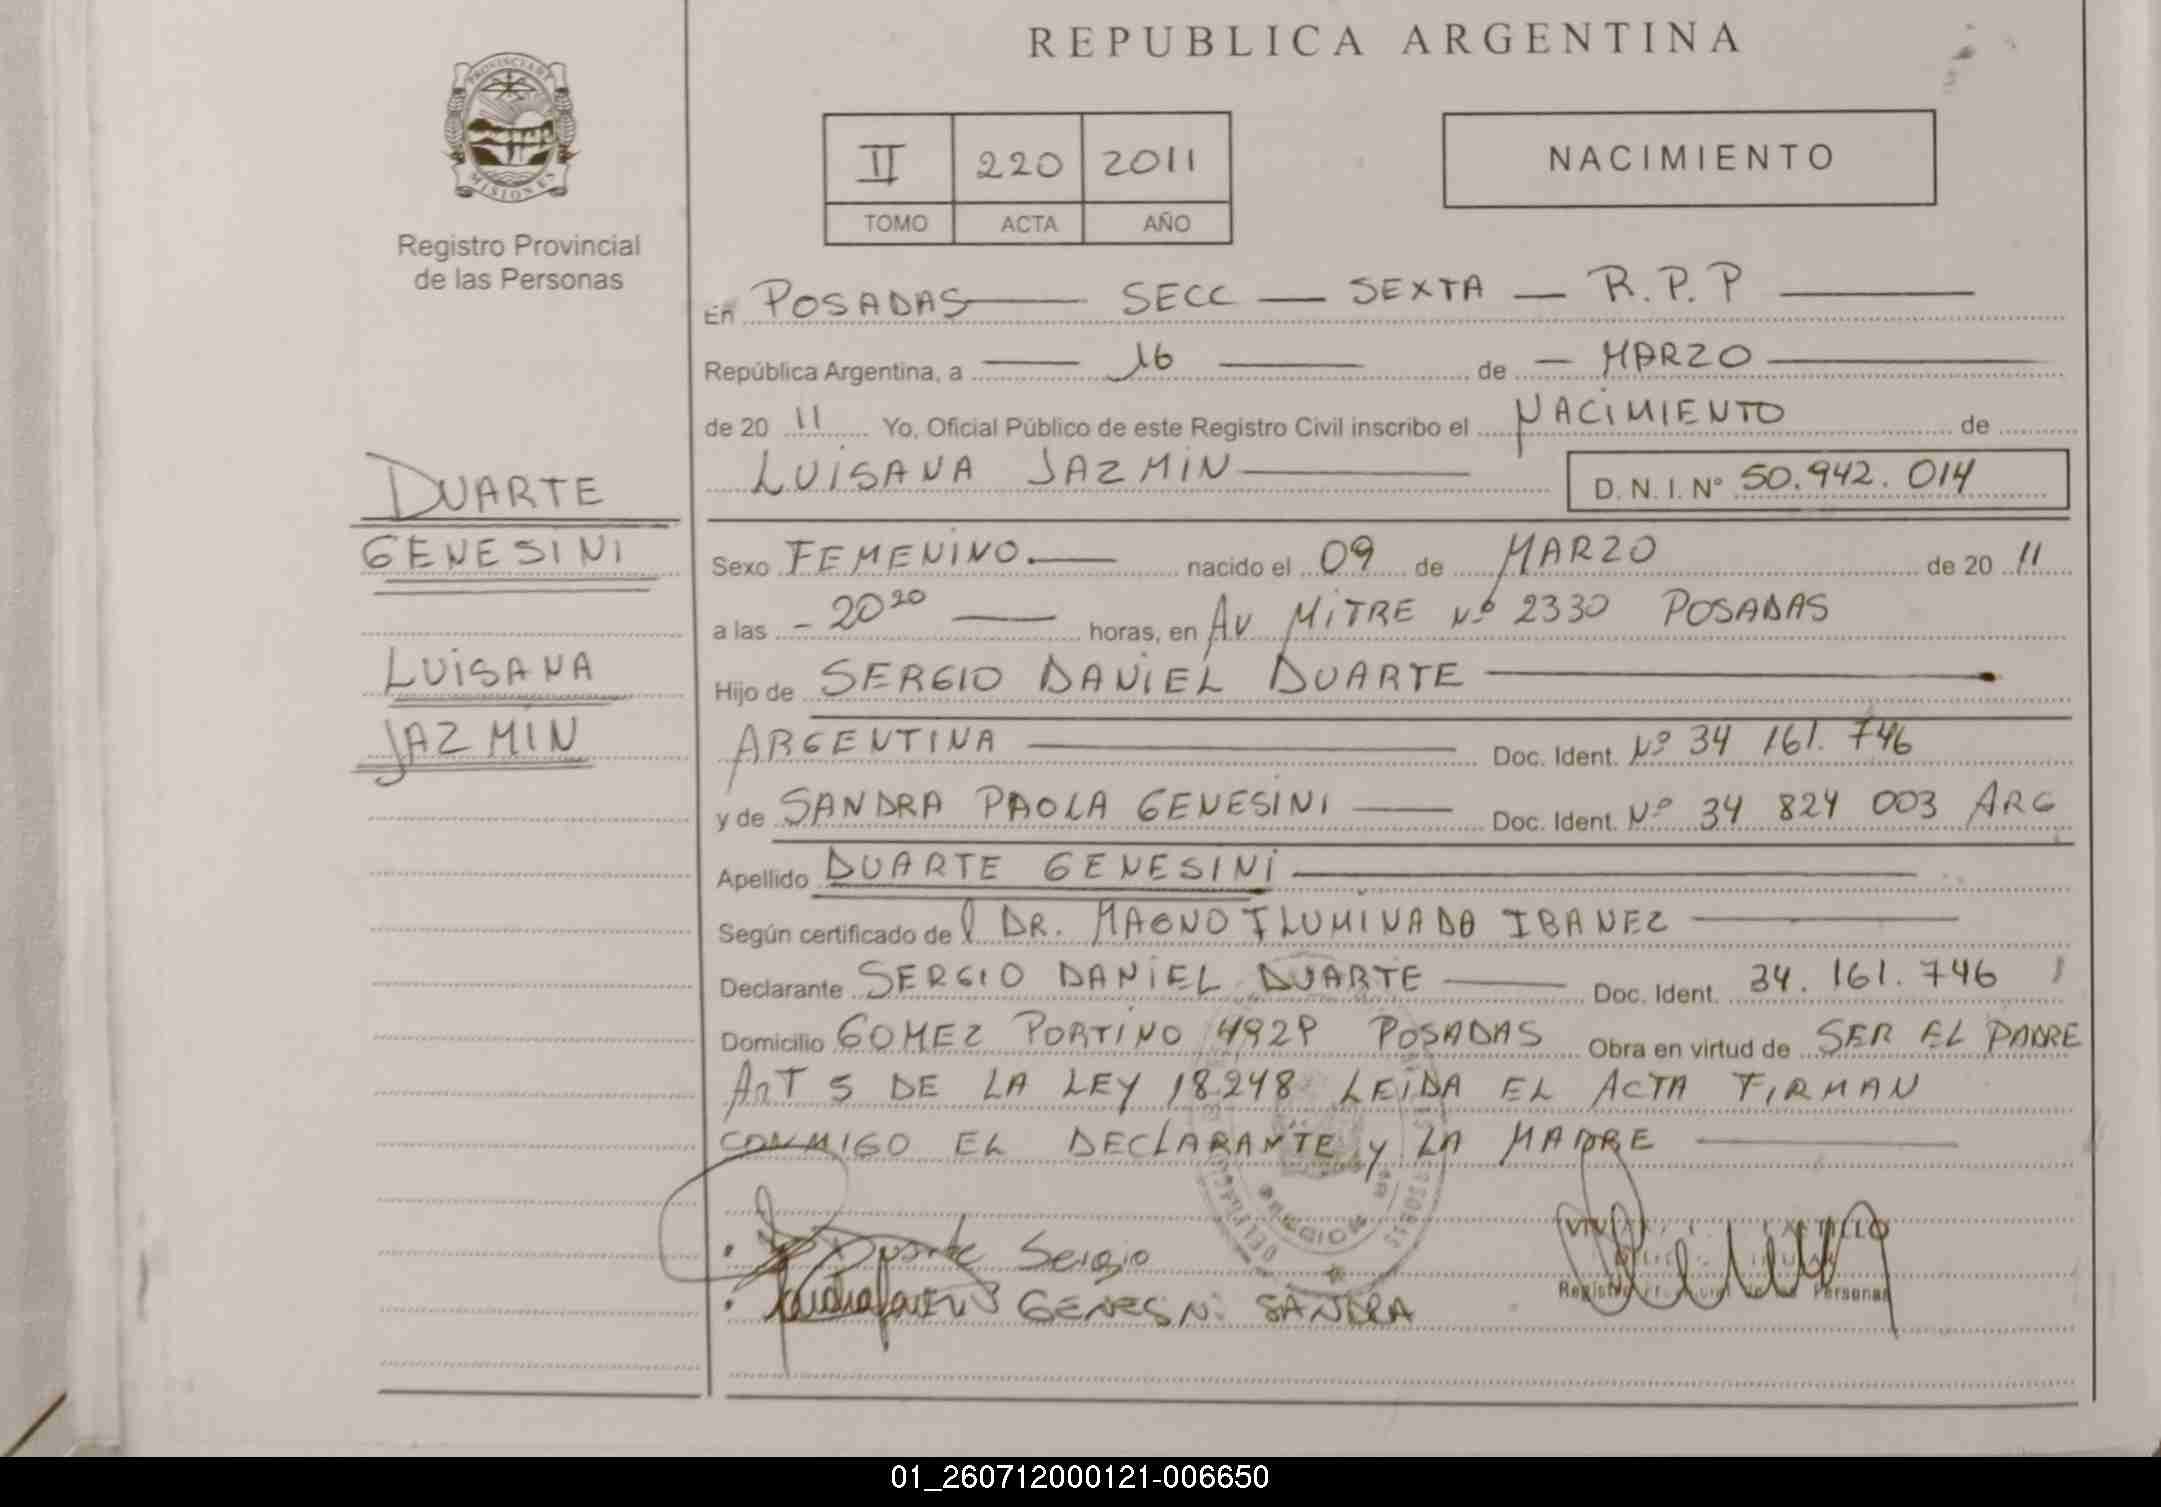 REPUBLICA ARGENTINA
PROVINCIA DE
MISIONES
Registro Provincial
de las Personas
II 220 2011
TOMO ACTA AÑO
NACIMIENTO
En POSADAS — SECC — SEXTA — R.P.P —
República Argentina, a — 16 — de — MARZO —
de 20 11 Yo, Oficial Público de este Registro Civil inscribo el NACIMIENTO de
LUISANA JAZMIN — D. N. I. Nº 50.942.014
DUARTE
GENESINI
LUISANA
JAZMIN
Sexo FEMENINO.— nacido el 09 de MARZO de 20 11
a las - 20 20 — horas, en AV MITRE Nº 2330 POSADAS
Hijo de SERGIO DANIEL DUARTE —
ARGENTINA — Doc. Ident. Nº 34 161. 746
y de SANDRA PAOLA GENESINI — Doc. Ident. Nº 34 824 003 ARG
Apellido DUARTE GENESINI —
Según certificado de l DR. MAGNO ILUMINADO IBANEZ —
Declarante SERGIO DANIEL DUARTE — Doc. Ident. 34. 161. 746
Domicilio GOMEZ PORTINO Nº POSADAS Obra en virtud de SER EL PADRE
ART 5 DE LA LEY 18248 LEIDA EL ACTA FIRMAN
CONMIGO EL DECLARANTE y LA MADRE —
Duarte Sergio
GENESNi SANDRA
Personas
01_260712000121-006650